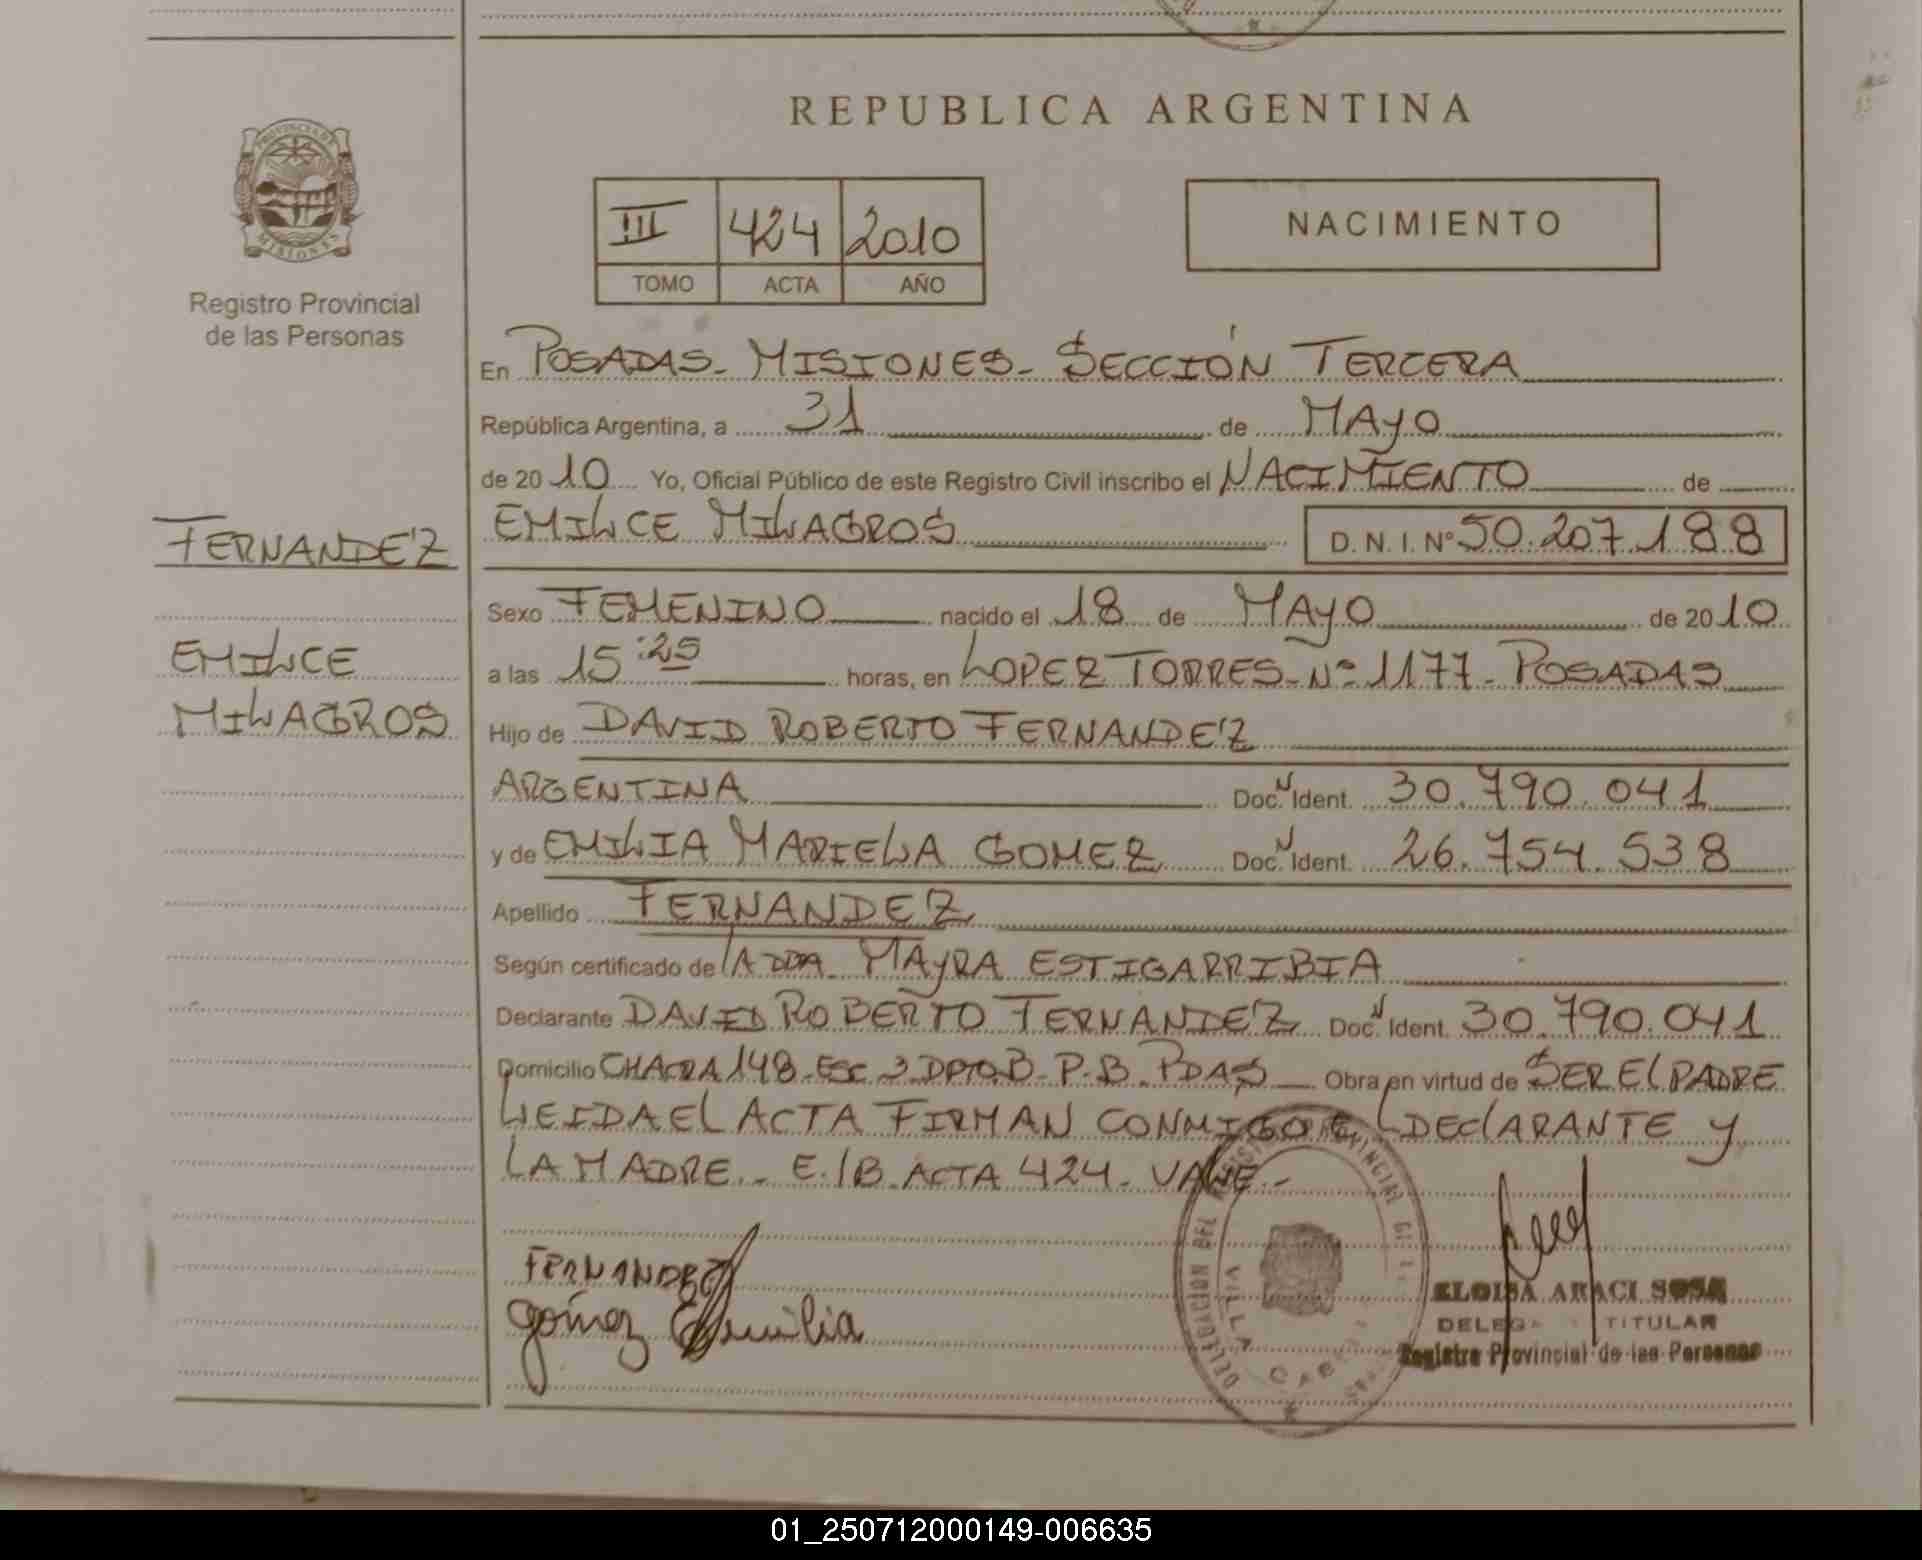 REPUBLICA ARGENTINA
PROVINCIA DE
MISIONES
Registro Provincial
de las Personas
III 424 2010
TOMO ACTA AÑO
NACIMIENTO
En POSADAS - MISIONES - SECCIÓN TERCERA
República Argentina, a 31 de MAYO
de 2010 Yo, Oficial Público de este Registro Civil inscribo el NACIMIENTO de
FERNANDEZ
EMILCE MILAGROS
EMILCE MILAGROS D.N.I. Nº 50.207.188
Sexo FEMENINO nacido el 18 de MAYO de 2010
a las 15:25 horas, en LOPEZ TORRES - Nº 1177 - POSADAS
Hijo de DAVID ROBERTO FERNANDEZ
ARGENTINA Doc. Ident. 30.790.041
y de EMILIA MARIELA GOMEZ Doc. Ident. 26.754.538
Apellido FERNANDEZ
Según certificado de LA DDA MAYRA ESTIGARRIBIA
Declarante DAVID ROBERTO FERNANDEZ Doc. Ident. 30.790.041
Domicilio CHACRA 148 - ESC 3 DPTO B - P.B. PDAS Obra en virtud de SER EL PADRE
LEIDA EL ACTA FIRMAN CONMIGO EL DECLARANTE Y
LA MADRE. - E/B. ACTA 424 - VALE -
FERNANDEZ
Gómez Emilia
DELEGACION DEL REGISTRO PROVINCIAL
VILLA CABELLO
ELOISA ARACI SOSA
DELEGADA TITULAR
Registro Provincial de las Personas
01_250712000149-006635